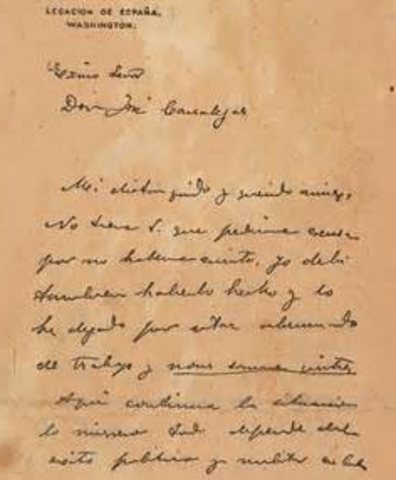 LEGACION DE ESPAÑA.
WASHINGTON.
Excmo Señor
Don José Canalejas
Mi distinguido y querido amigo,
No tiene V. que pedirme excusa
por no haberme escrito, yo debí
tambien haberlo hecho y lo
he dejado por estar abrumado
de trabajo y nous sommes quittes
Aquí continua la situacion
lo mismo. Todo depende del
exito político y militar en